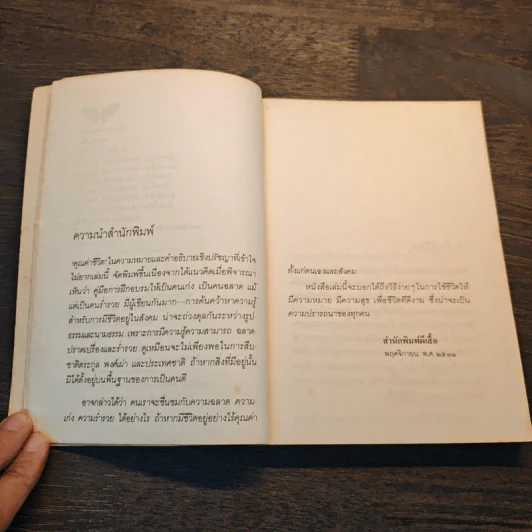 ความนำสำนักพิมพ์
'คุณค่าชีวิต' ในความหมายและคำอธิบายเชิงปรัชญาที่เข้าใจ
ไม่ยากเล่มนี้ จัดพิมพ์ขึ้นเนื่องจากได้แนวคิดเมื่อพิจารณา
เห็นว่า คู่มือการฝึกอบรมให้เป็นคนเก่ง เป็นคนฉลาด แม้
แต่เป็นคนร่ำรวย มีผู้เขียนกันมาก—การค้นคว้าหาความรู้
สำหรับการมีชีวิตอยู่ในสังคม น่าจะถ่วงดุลกันระหว่างรูป
ธรรมและนามธรรม เพราะการมีความรู้ความสามารถ ฉลาด
ปราดเปรื่องและร่ำรวย ดูเหมือนจะไม่เพียงพอในการสืบ
ชาติตระกูล พงศ์เผ่า และประเทศชาติ ถ้าหากสิ่งที่มีอยู่นั้น
มิได้ตั้งอยู่บนพื้นฐานของการเป็นคนดี
อาจกล่าวได้ว่า คนเราจะชื่นชมกับความฉลาด ความ-
เก่ง ความร่ำรวย ได้อย่างไร ถ้าหากมีชีวิตอยู่อย่างไร้คุณค่า
ทั้งแก่ตนเองและสังคม
หนังสือเล่มนี้จะบอกได้ถึงวิธีง่ายๆ ในการใช้ชีวิตให้
มีความหมาย มีความสุข เพื่อชีวิตที่ดีงาม ซึ่งน่าจะเป็น
ความปรารถนาของทุกคน
สำนักพิมพ์ผีเสื้อ
พฤศจิกายน พ.ศ. ๒๕๓๑